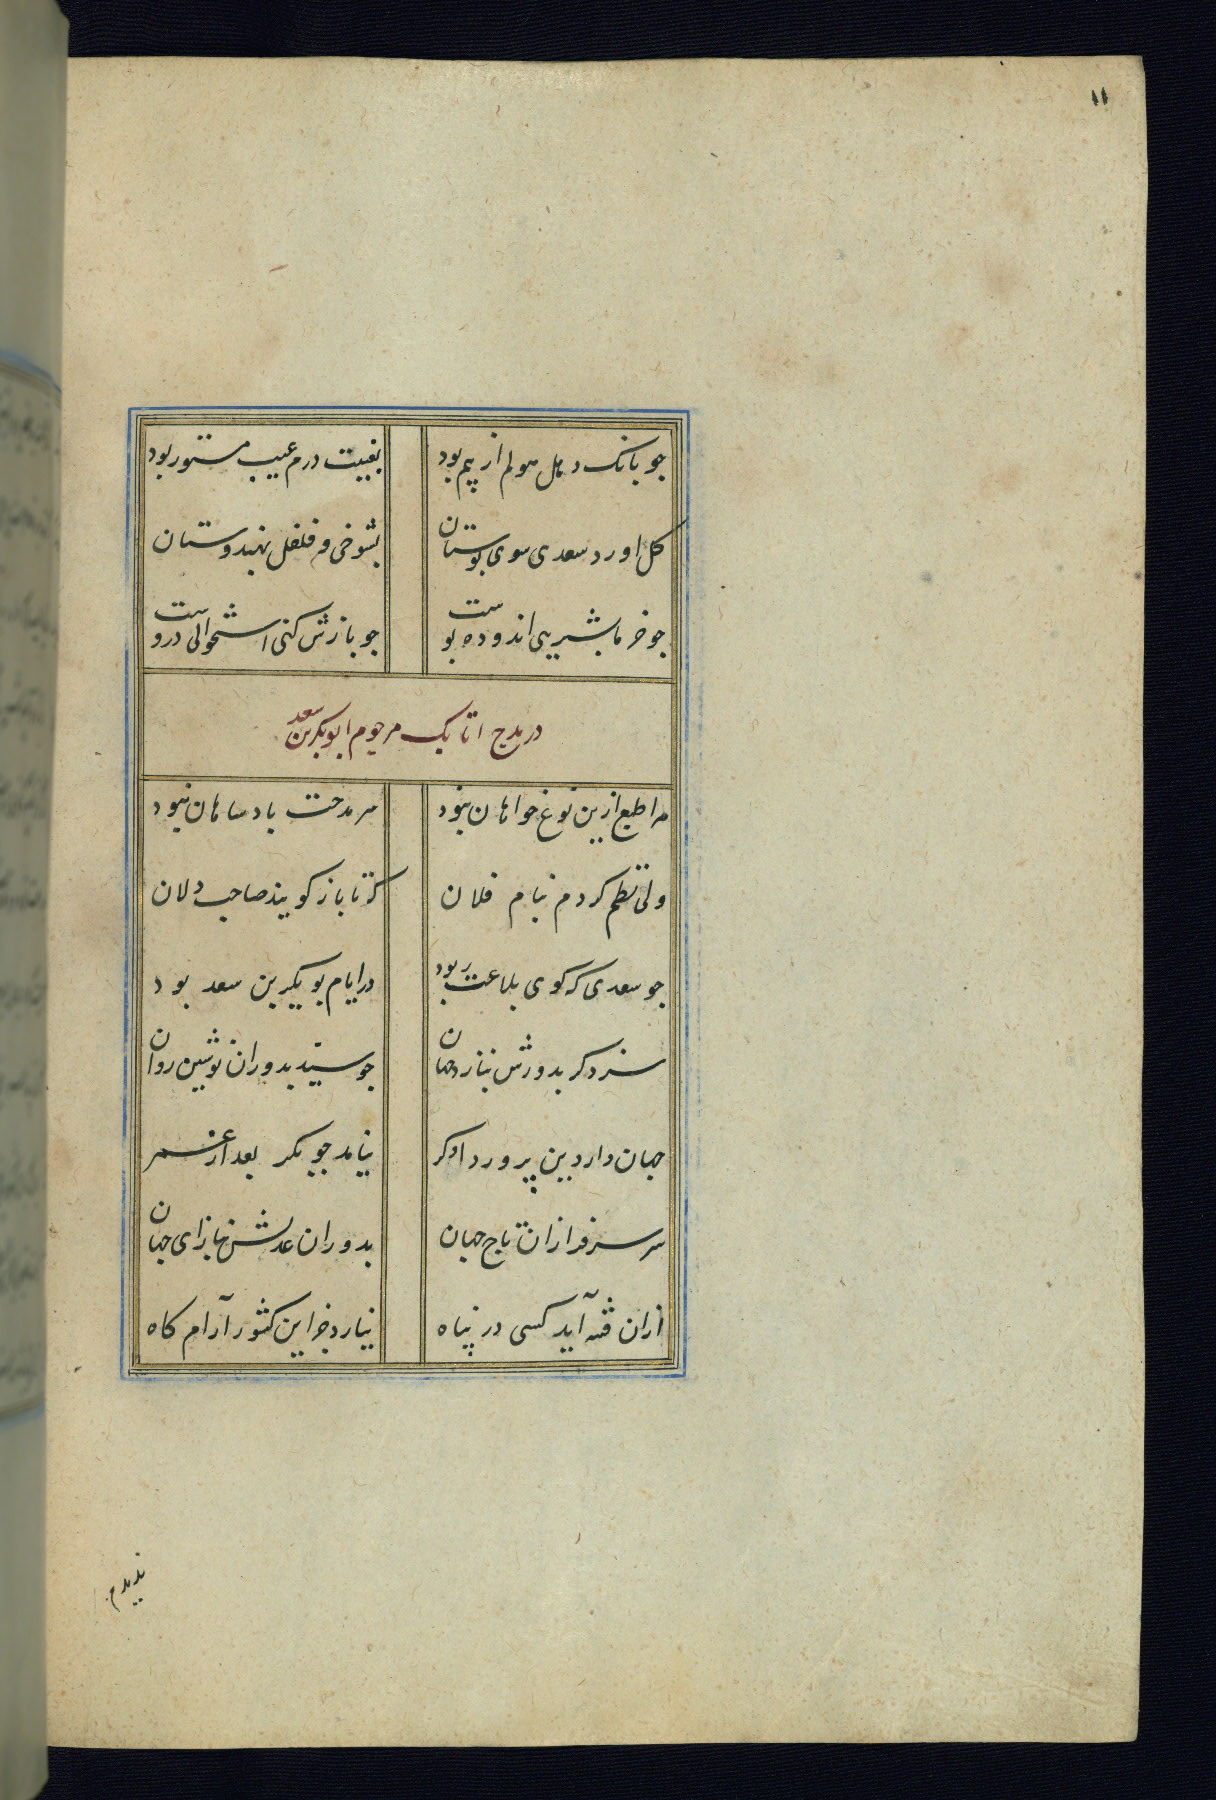 ۱۱
جو بانک دهل هولم از پیم بود بغیبت درم عیب مستور بود
کل اورد سعدی سوی بوستان بشوخی و فلفل بهندوستان
جو خرما بشیرینی اندوده بوست جو بازش کنی استخوالی دروست
در مدح اتابک مرحوم ابوبکر بن سعد
مرا طبع ازین نوع خواهان نبود سر مدحت بادشاهان نبود
ولی نظم کردم بنام فلان کر تا باز کویند صاحب دلان
جو سعدی که کوی بلاغت ربود در ایام بوبکر بن سعد بود
سزد کر بدورش بنازد جهان جو سید بدوران نوشین روان
جهان دار دین پرور دادکر نیامد جو بکر بعد از عمر
سر سرفرازان تاج جهان بدوران عدلش بناز ای جهان
ازان فتنه آید کسی در پناه نیارد جز این کشور آرام کاه
ندیدم